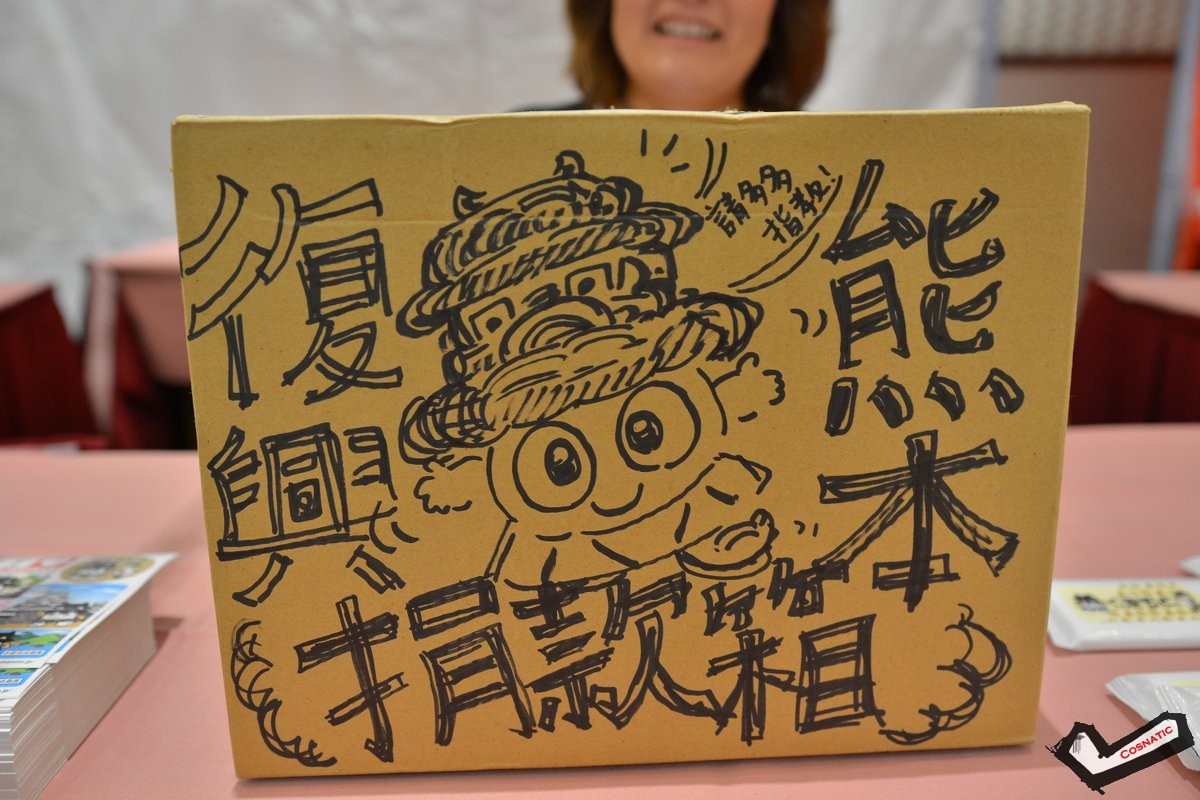 請多多
指教!
熊木
復興
捐款箱
COSNATIC